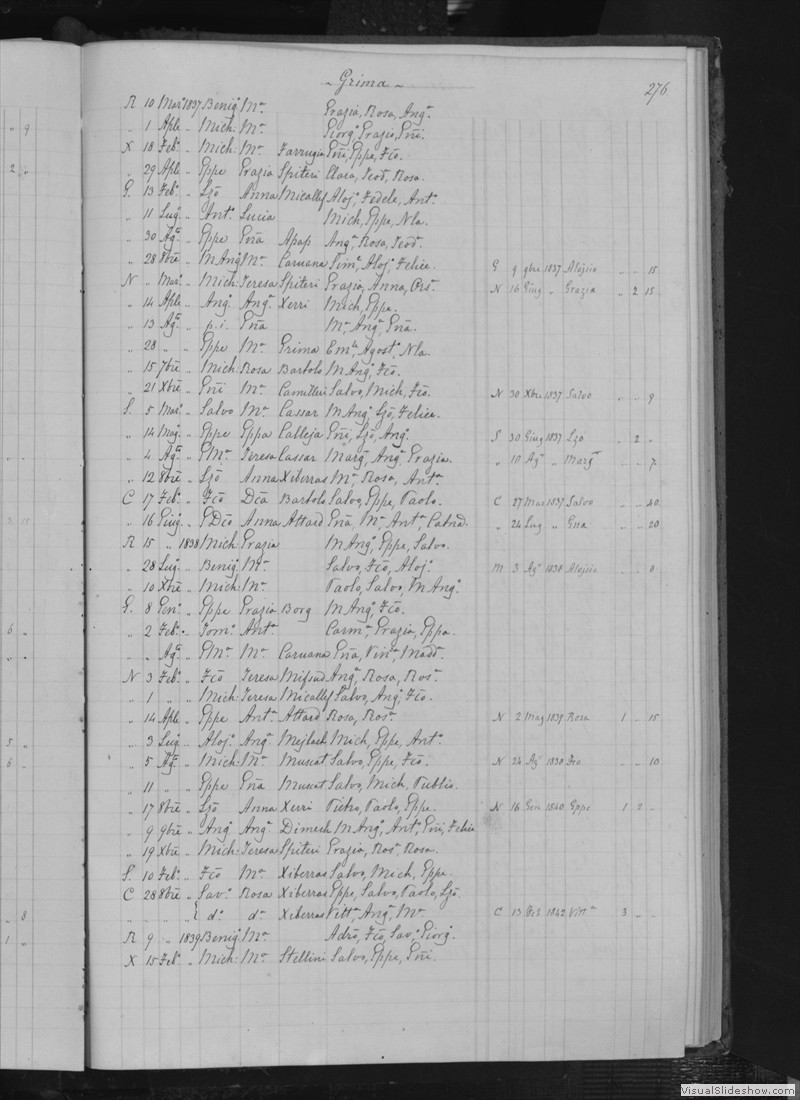 ~ Grima ~ 276
R 10 Marᵒ 1837 Benigᵒ Mᵃ Grazia, Rosa, Angᵃ
„ 1 Aple „ Mich: Mᵃ Giorgᵒ Grazia, Gñi.
X 18 Febᵒ „ Mich: Mᵃ Farrugia Gñi, Gppe, Fcõ.
„ 29 Aple „ Gppe Grazia Spiteri Clara, Teodᵃ, Rosa.
G. 13 Febᵒ „ Lzõ Anna Micallef Alojᵒ, Fedele, Antᵃ
„ 11 Lugᵒ „ Antᵒ Lucia Mich, Gppe, Nla.
„ 30 Agᵒ „ Gppe Gña Apap Angᵃ, Rosa, Teodᵃ.
„ 28 8bre „ M Angᵒ Mᵃ Caruana Simᵉ, Alojᵒ, Felice. G 9 9bre 1837 Alojsio „ „ 15
N „ Marᵒ „ Mich: Teresa Spiteri Grazia, Anna, Rosᵃ N 16 Giug „ Grazia „ 2 15
„ 14 Aple „ Angᵒ Angᵃ Xerri Mich, Gppa.
„ 13 Agᵒ „ p.i. Gña Mᵃ, Angᵃ, Gña.
„ 28 „ „ Gppe Mᵃ Grima Emˡᵉ, Agostᵒ, Nla.
„ 15 7bre „ Mich: Rosa Bartolo M Angᵒ, Fcõ.
„ 21 Xbre „ Gñi Mᵃ Camilleri Salvo, Mich, Fcõ. N 30 Xbre 1837 Salvo „ „ 9
S. 5 Marᵒ „ Salvo Mᵃ Cassar M Angᵒ, Lzõ, Felice.
„ 14 Magᵒ „ Gppe Gppa Calleja Gñi, Lzõ, Angᵒ. S 30 Giug 1837 Lzo „ 2 „
„ 4 Agᵒ „ GMᵃ Teresa Cassar Margᵗᵃ, Angᵃ, Grazia. „ 10 Agᵒ „ Margᵗᵃ „ „ 7
„ 12 8bre „ Lzõ Anna Xiberras Mᵃ, Rosa, Antᵃ
C 17 Febᵒ „ Fcõ Dcã Bartolo Salvo, Gppe, Paolo. C 27 Mar 1837 Salvo „ „ 40
„ 16 Giugᵒ „ GDcõ Anna Attard Gña, Mᵃ, Antᵃ, Catnã. „ 24 Lug „ Gna „ „ 20
R 15 „ 1838 Mich: Grazia M Angᵒ, Gppe, Salvo.
„ 28 Lugᵒ „ Benigᵒ Mᵃ Salvo, Fcõ, Alojᵒ. M 3 Agᵒ 1838 Alojsio „ „ 8
„ 10 Xbre „ Mich: Mᵃ Paolo, Salvo, M Angᵒ.
G. 8 Genᵒ „ Gppe Grazia Borg M Angᵒ, Fcõ.
„ 2 Febᵒ „ Tomᵒ Antᵃ Carmᵃ, Grazia, Gppa.
„ „ Agᵒ „ GMᵃ Mᵃ Caruana Gña, Vinᵃ, Maddᵃ.
N 3 Febᵒ „ Fcõ Teresa Mifsud Angᵃ, Rosa, Rosᵃ.
„ 1 „ „ Mich: Teresa Micallef Salvo, Angᵒ, Fcõ.
„ 14 Aple „ Gppe Antᵃ Attard Rosa, Rosᵃ. N 2 Mag 1839 Rosa 1 „ 15
„ 3 Lugᵒ „ Alojᵒ Angᵃ Mejlach Mich, Gppe, Antᵒ.
„ 5 Agᵒ „ Mich: Mᵃ Muscat Salvo, Gppe, Fcõ. N 24 Agᵒ 1838 Fco „ „ 10
„ 11 „ „ Gppe Gña Muscat Salvo, Mich, Publio.
„ 17 8bre „ Lzõ Anna Xerri Pietro, Paolo, Gppe. N 16 Gen 1840 Gppe 1 2 „
„ 9 9bre „ Angᵒ Angᵃ Dimech M Angᵒ, Antᵒ, Gñi, Felice
„ 19 Xbre „ Mich: Teresa Spiteri Grazia, Rosᵃ, Rosa.
S. 10 Febᵒ „ Fcõ Mᵃ Xiberras Salvo, Mich, Gppe.
C 28 8bre „ Savᵒ Rosa Xiberras Gppe, Salvo, Paolo, Lzõ.
„ „ „ „ { dᵒ dᵃ Xiberras Vittᵃ, Angᵃ, Mᵃ. C 13 1842 Vittᵃ 3 „ „
R 9 „ 1839 Benigᵒ Mᵃ Adrõ, Fcõ, Savᵒ, Giorgᵒ.
X 15 Febᵒ „ Mich: Mᵃ Stellini Salvo, Gppe, Gñi.
VisualSlideshow.com